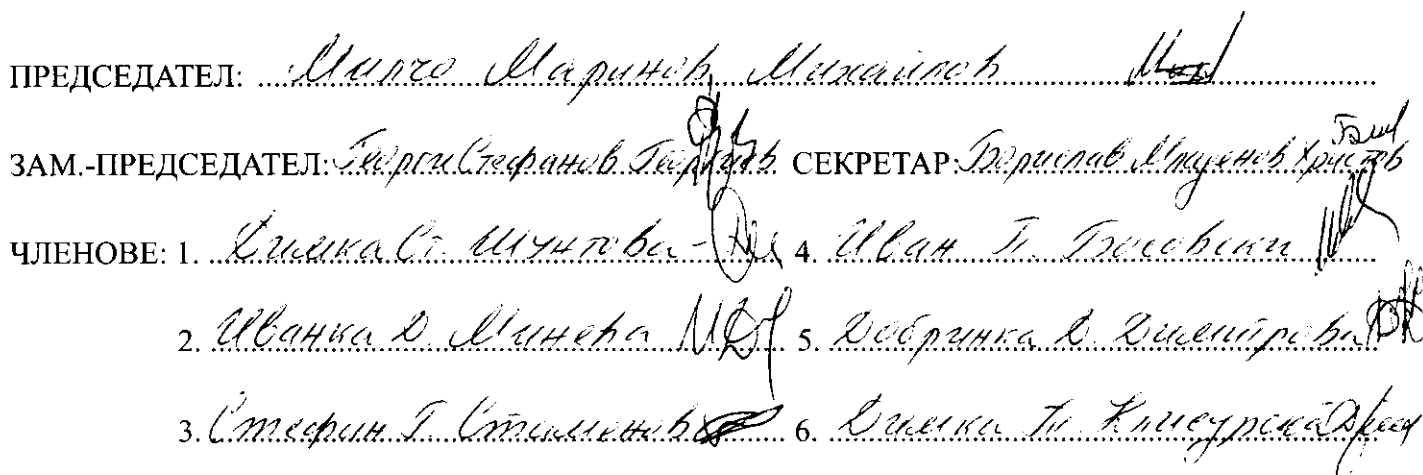 ПРЕДСЕДАТЕЛ: Милчо Маринов Михайлов
ЗАМ.-ПРЕДСЕДАТЕЛ: Георги Стефанов Георгиев СЕКРЕТАР: Борислав Младенов Христов
ЧЛЕНОВЕ: 1. Димка Ст. Шунтова 4. Иван П. Босовски
2. Иванка Д. Минева 5. Добринка Д. Димитрова
3. Стефан Г. Стаменов 6. Димка П. Клисурска